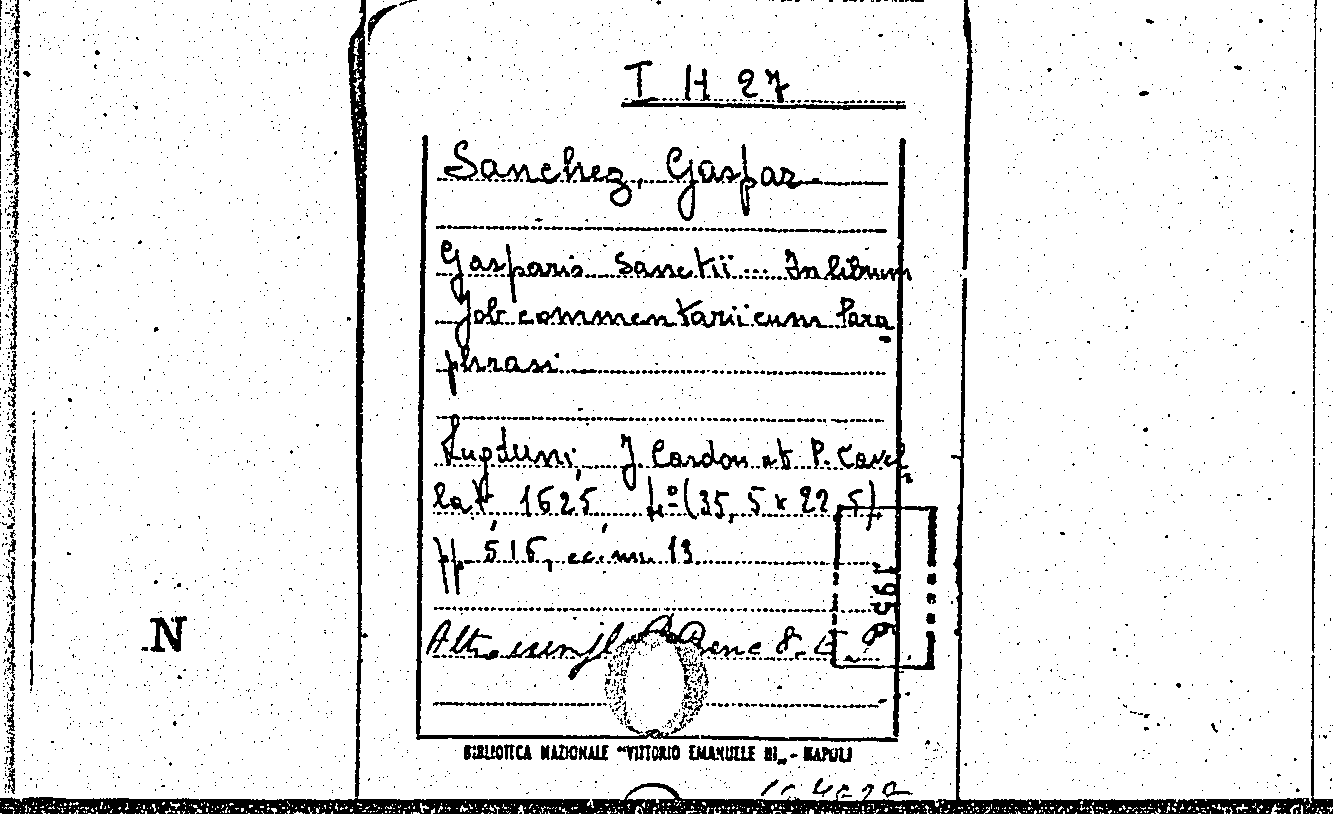 I H 27
Sanchez, Gaspar.
Gasparis Sanctii ... In librum
Job commentarii cum Para
phrasi
Lugduni, J. Cardon et P. Cavel
lat, 1625, 4º (35,5 x 22,5)
pp. 515, cc. nn. 13
1956
Altro esempl. Branc 8. G.
N
BIBLIOTECA NAZIONALE "VITTORIO EMANUELE III" - NAPOLI